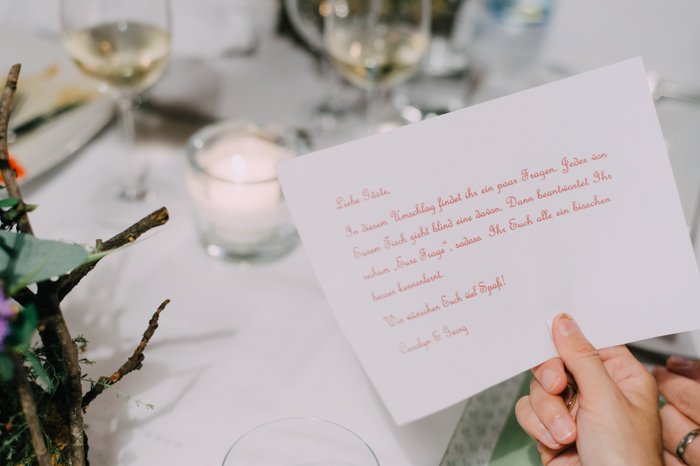 Liebe Gäste,
In diesem Umschlag findet ihr ein paar Fragen. Jeder von
Eurem Tisch zieht blind eine davon. Dann beantwortet Ihr
reihum „Eure Frage“, sodass Ihr Euch alle ein bisschen
besser kennenlernt.
Wir wünschen Euch viel Spaß!
Carolyn & Georg